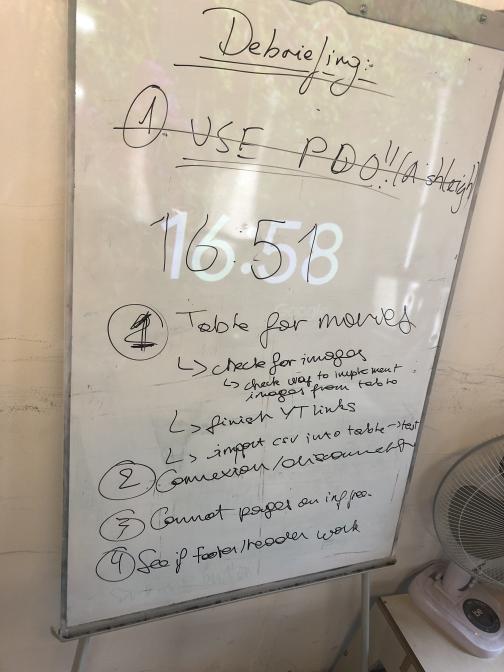 Debriefing:
1. USE PDO!! (Ashleigh)
16:51
16:58
1 Table for movies
↳ check for images
↳ check way to implement
images from table
↳ finish YT links
↳ import csv into table → test
2 Connexion/disconnect
3 Connect pages on
4 See if footer/header work